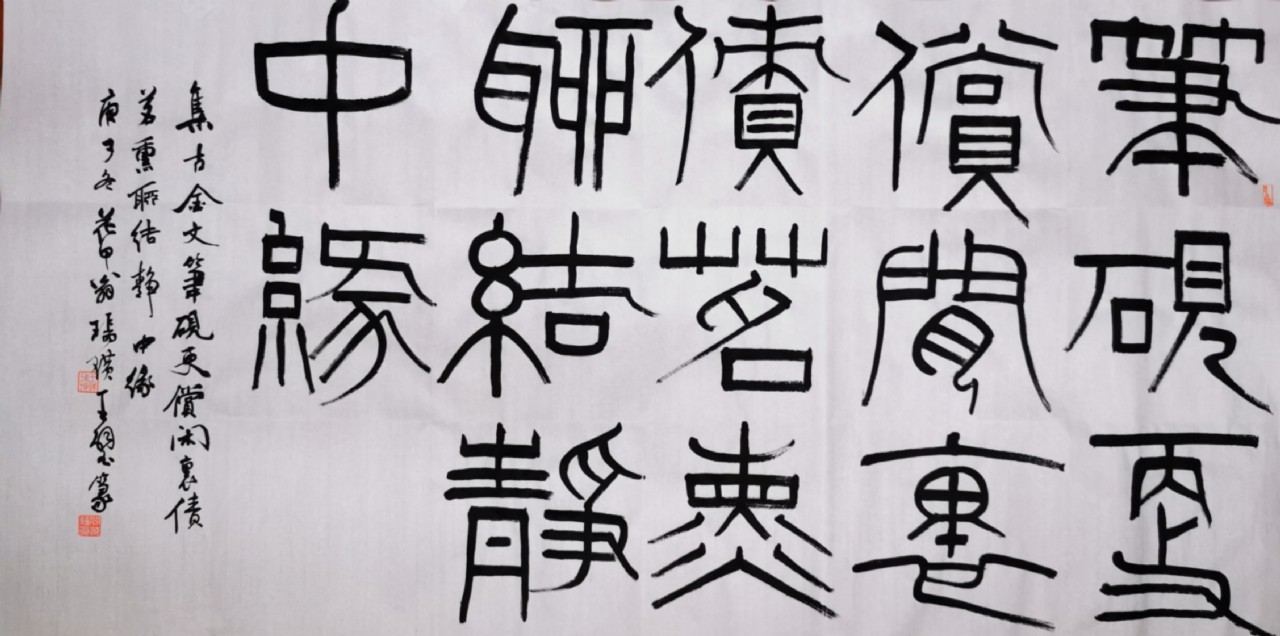 筆硯更
償閒裏
債茗熏
聊結靜
中緣
集古金文筆硯更償闲裏债
茗熏聊结静中缘
庚子冬花甲翁瑞璜王篆